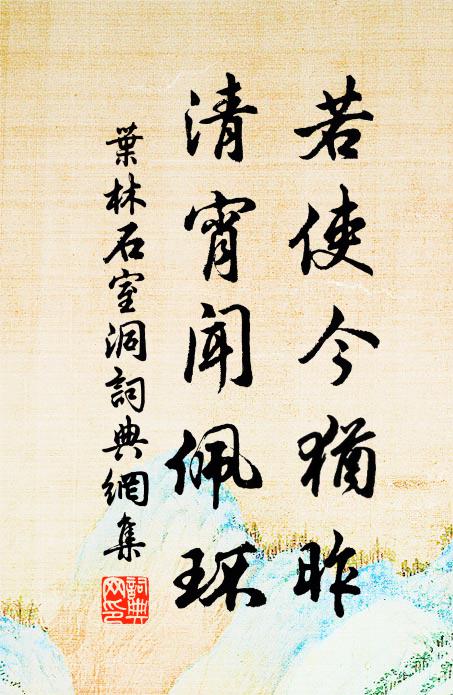 若使今猶昨
清宵聞佩環
葉林石室洞詞典網集
詞典